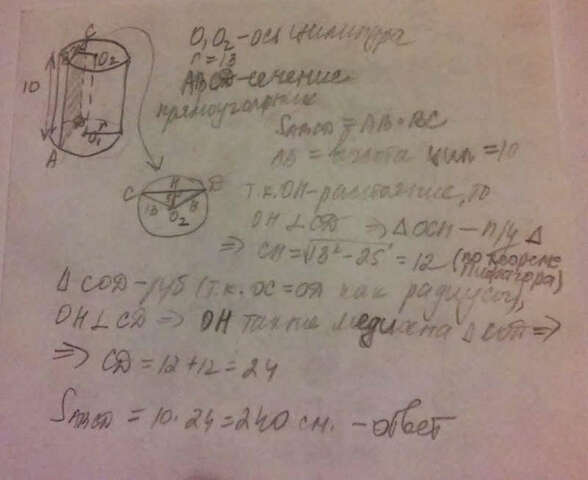 O₁O₂ - ось цилиндра
r = 13
ABCD - сечение
прямоугольник
S ABCD = AB · BC
AB = высота цил = 10
т.к. OH - расстояние, то
OH ⊥ CD ⇒ △ OCH - п/у △
⇒ CH = √13² - 25 = 12 (по теореме
Пифагора)
△ COD - р/б (т.к. OC = OD как радиусы),
OH ⊥ CD ⇒ OH также медиана △ COD ⇒
⇒ CD = 12 + 12 = 24
S ABCD = 10 · 24 = 240 см. - ответ
C
B
O₂
10
D
r
O₁
A
C
H
5
13
13
O₂